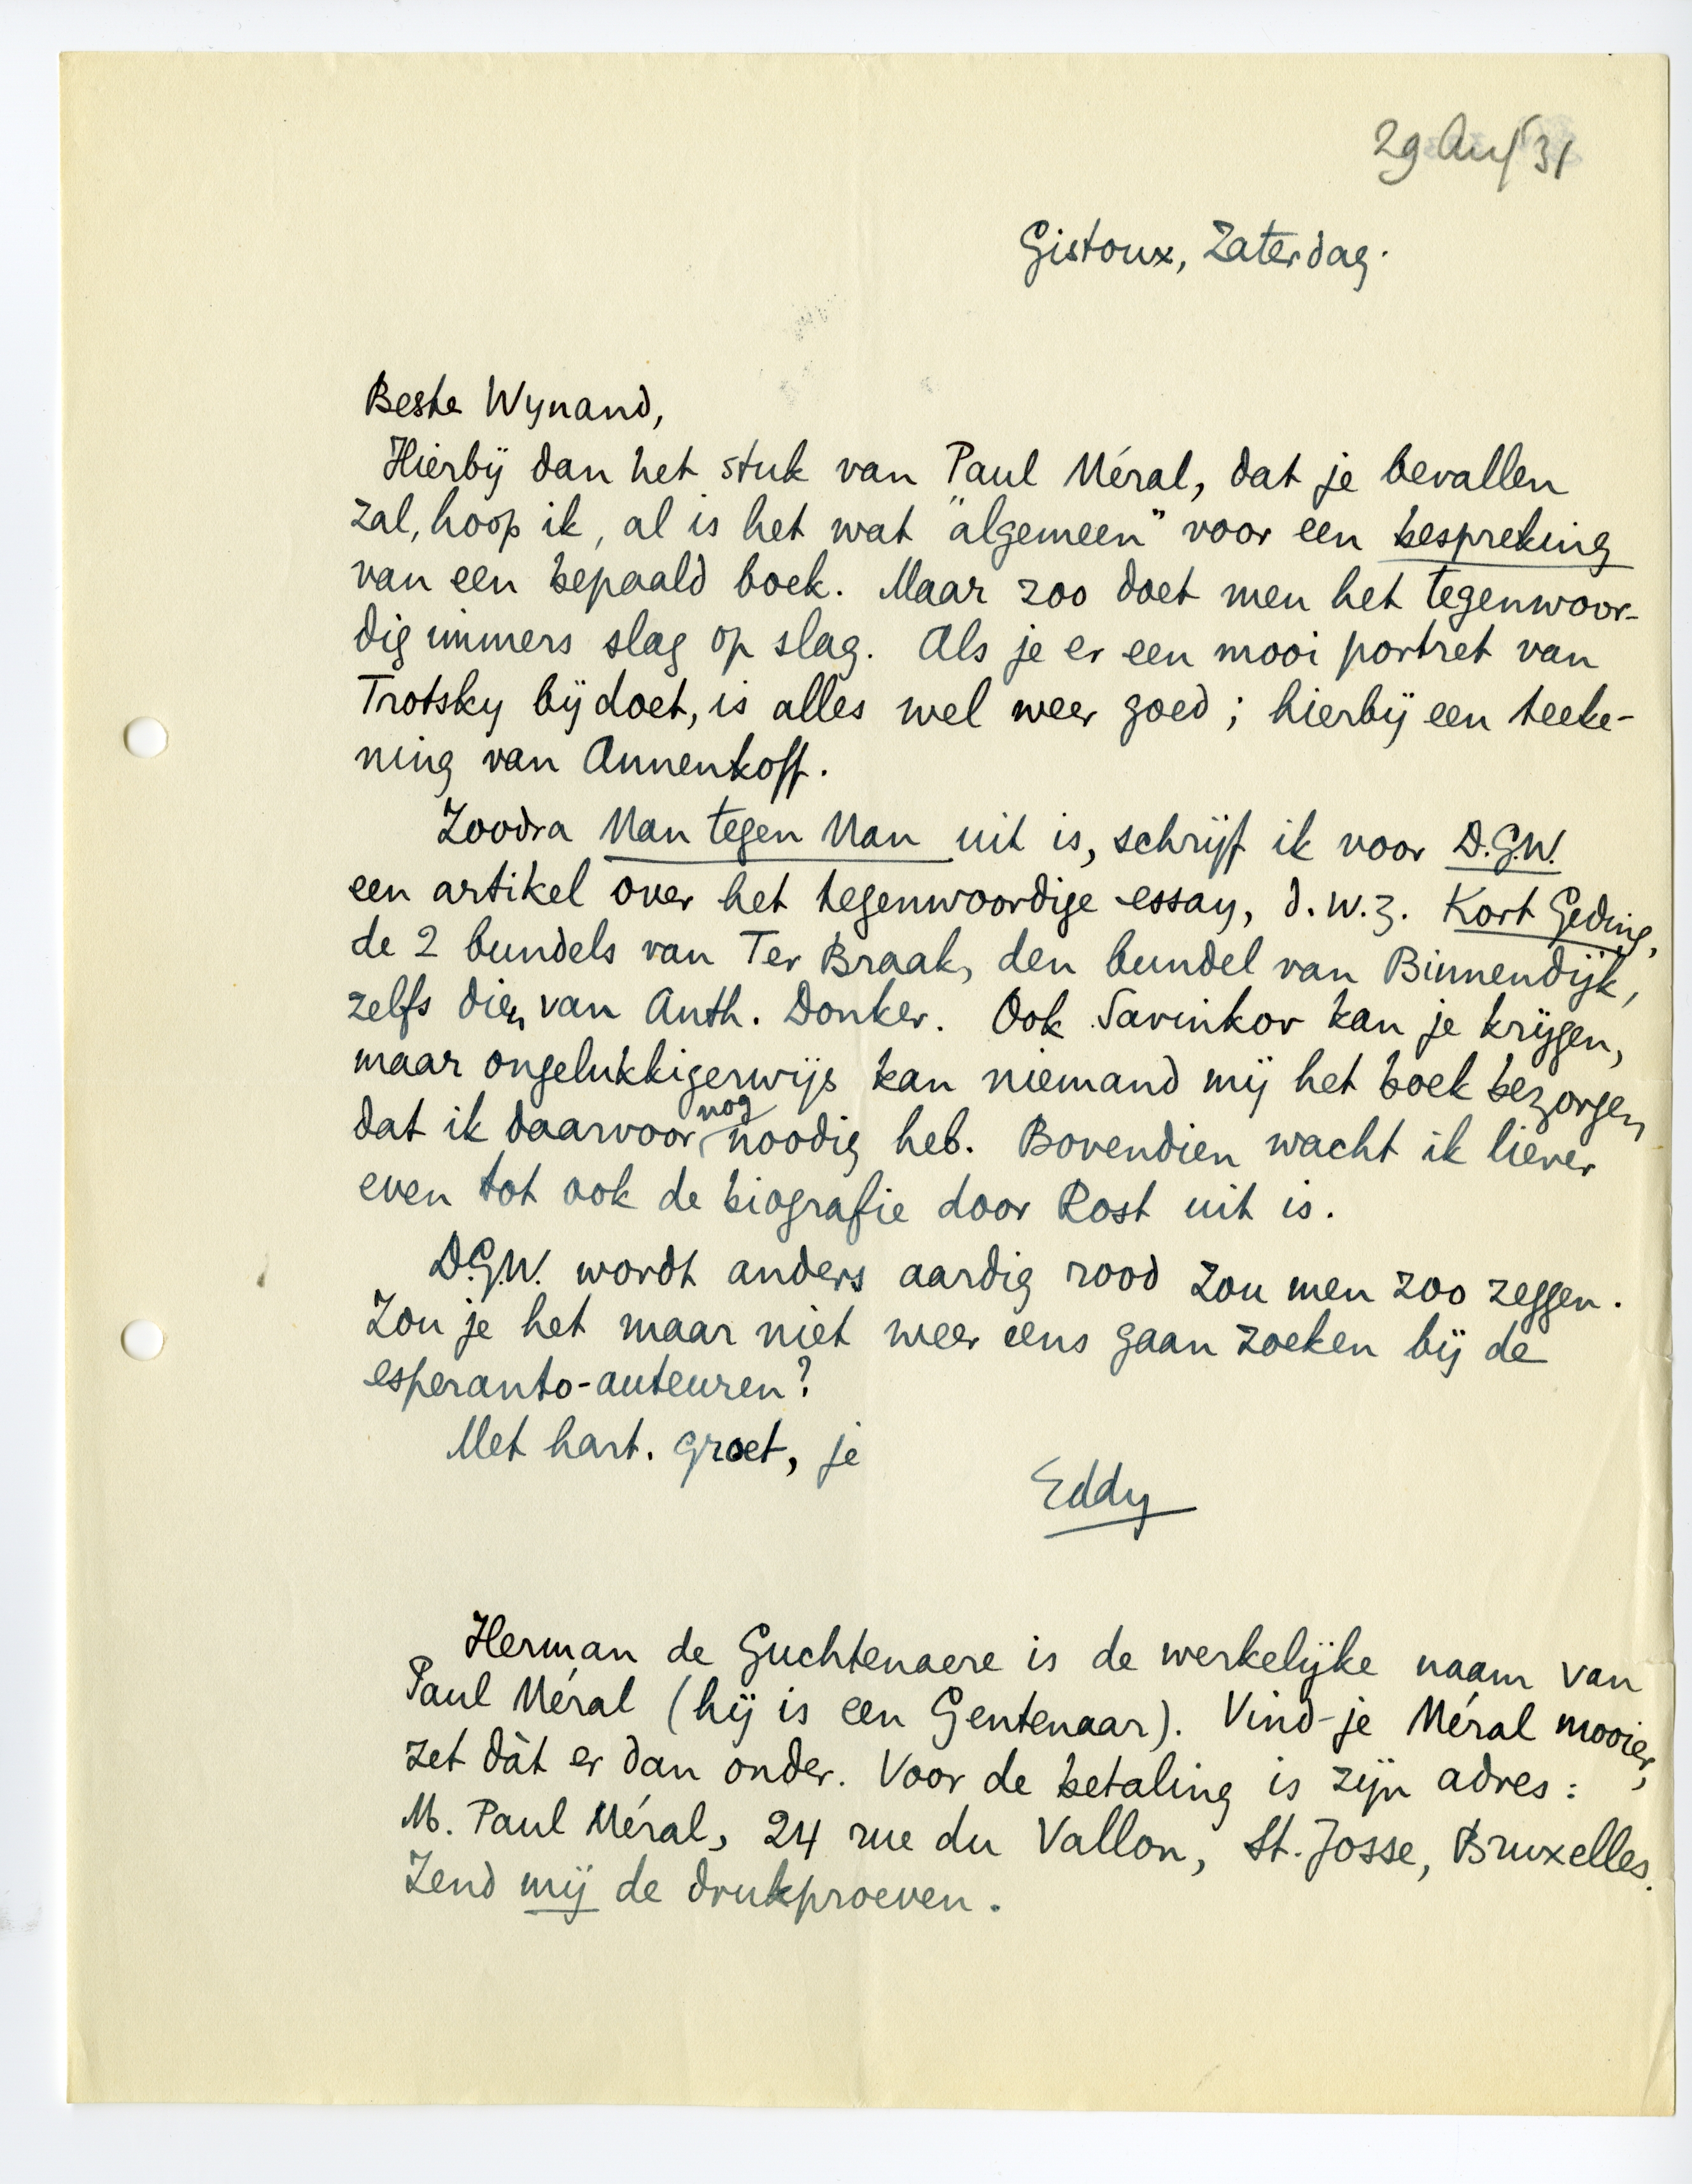 29 Aug 31
Gistoux, Zaterdag.
Beste Wynand,
Hierbij dan het stuk van Paul Méral, dat je bevallen
zal, hoop ik, al is het wat "algemeen" voor een bespreking
van een bepaald boek. Maar zoo doet men het tegenwoor-
dig immers slag op slag. Als je er een mooi portret van
Trotsky bij doet, is alles wel weer goed; hierbij een teeke-
ning van Annenkoff.
Zoodra Man tegen Man uit is, schrijf ik voor D.G.W.
een artikel over het tegenwoordige essay, d.w.z. Kort Geding,
de 2 bundels van Ter Braak, den bundel van Binnendijk,
zelfs dien van Anth. Donker. Ook Savinkov kan je krijgen,
maar ongelukkigerwijs kan niemand mij het boek bezorgen
dat ik daarvoor nog noodig heb. Bovendien wacht ik liever
even tot ook de biografie door Rost uit is.
D.G.W. wordt anders aardig rood zou men zoo zeggen.
Zou je het maar niet weer eens gaan zoeken bij de
esperanto-auteuren?
Met hart. groet, je
Eddy
Herman de Guchtenaere is de werkelijke naam van
Paul Méral (hij is een Gentenaar). Vind-je Méral mooier,
zet dàt er dan onder. Voor de betaling is zijn adres:
M. Paul Méral, 24 rue du Vallon, St. Josse, Bruxelles.
Zend mij de drukproeven.